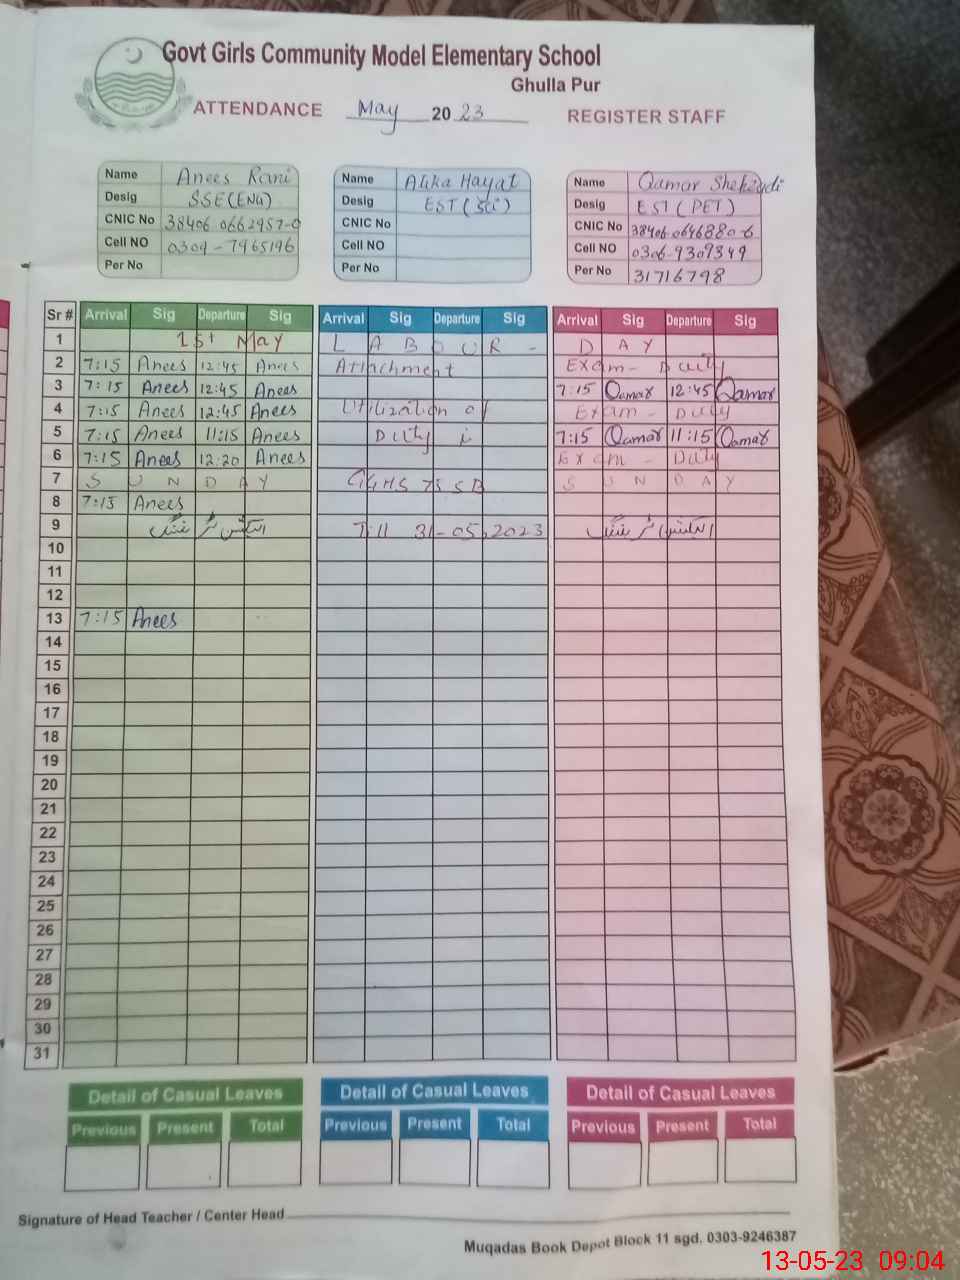 Govt Girls Community Model Elementary School
Ghulla Pur
ATTENDANCE May 2023 REGISTER STAFF
Name Anees Rani
Desig SSE(ENG)
CNIC No 38406 0662957-0
Cell NO 0309-7965196
Per No
Name Atika Hayat
Desig EST (Sci)
CNIC No
Cell NO
Per No
Name Qamar Shehzadi
Desig EST (PET)
CNIC No 38406 0646880-6
Cell NO 0306-9309349
Per No 31716798
Sr # Arrival Sig Departure Sig Arrival Sig Departure Sig Arrival Sig Departure Sig
1 1st May LABOUR - DAY
2 7:15 Anees 12:45 Anees Attachment Exam - Duty
3 7:15 Anees 12:45 Anees 7:15 Qamar 12:45 Qamar
4 7:15 Anees 12:45 Anees Utilization of Exam - Duty
5 7:15 Anees 11:15 Anees Duty i 7:15 Qamar 11:15 Qamar
6 7:15 Anees 12:20 Anees Exam - Duty
7 SUNDAY GGHS 75 SB SUNDAY
8 7:15 Anees
9 الیکشن ٹریننگ 31-05-2023 الیکشن ٹریننگ
10
11
12
13 7:15 Anees
14
15
16
17
18
19
20
21
22
23
24
25
26
27
28
29
30
31
Detail of Casual Leaves Detail of Casual Leaves Detail of Casual Leaves
Previous Present Total Previous Present Total Previous Present Total
Signature of Head Teacher / Center Head
Muqadas Book Depot Block 11 sgd. 0303-9246387
13-05-23 09:04